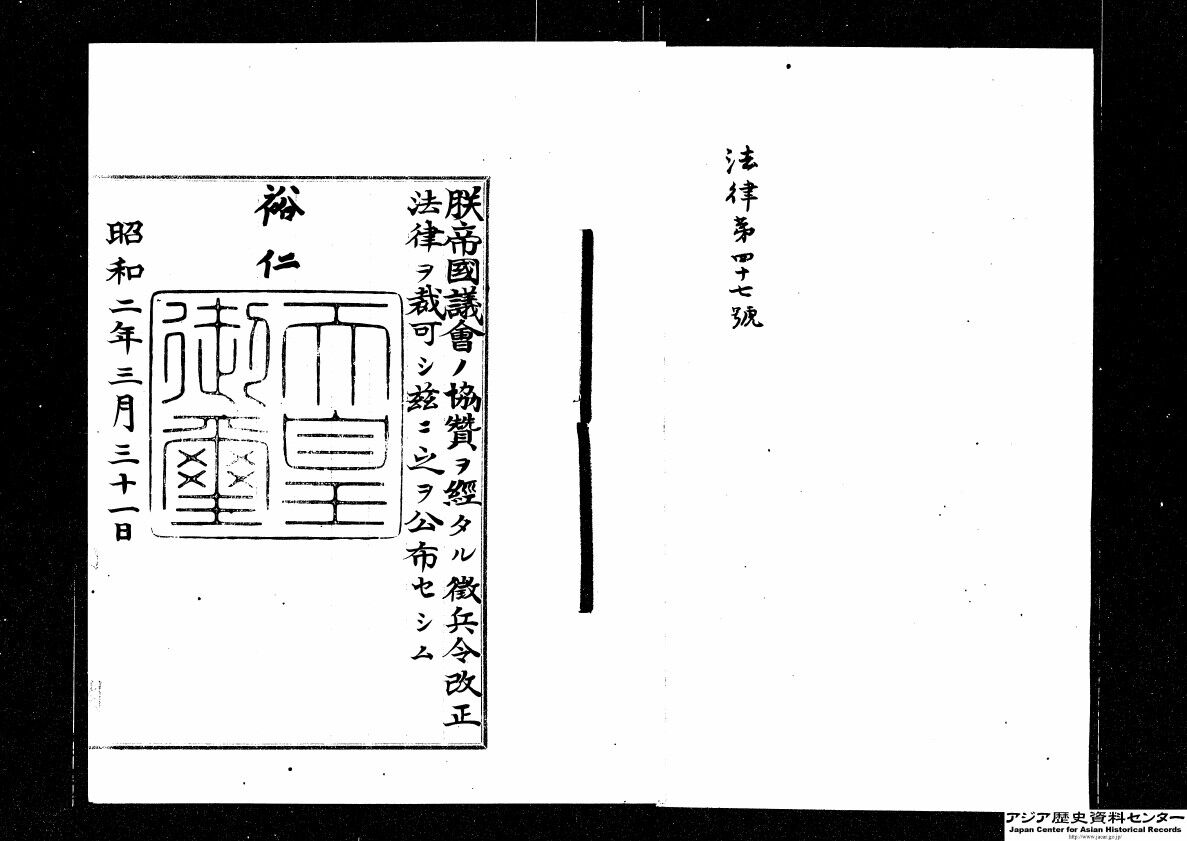 法律第四十七號
朕帝國議會ノ協贊ヲ經タル徴兵令改正
法律ヲ裁可シ茲ニ之ヲ公布セシム
裕仁
天皇
御璽
昭和二年三月三十一日
アジア歴史資料センター
Japan Center for Asian Historical Records
http://www.jacar.go.jp/